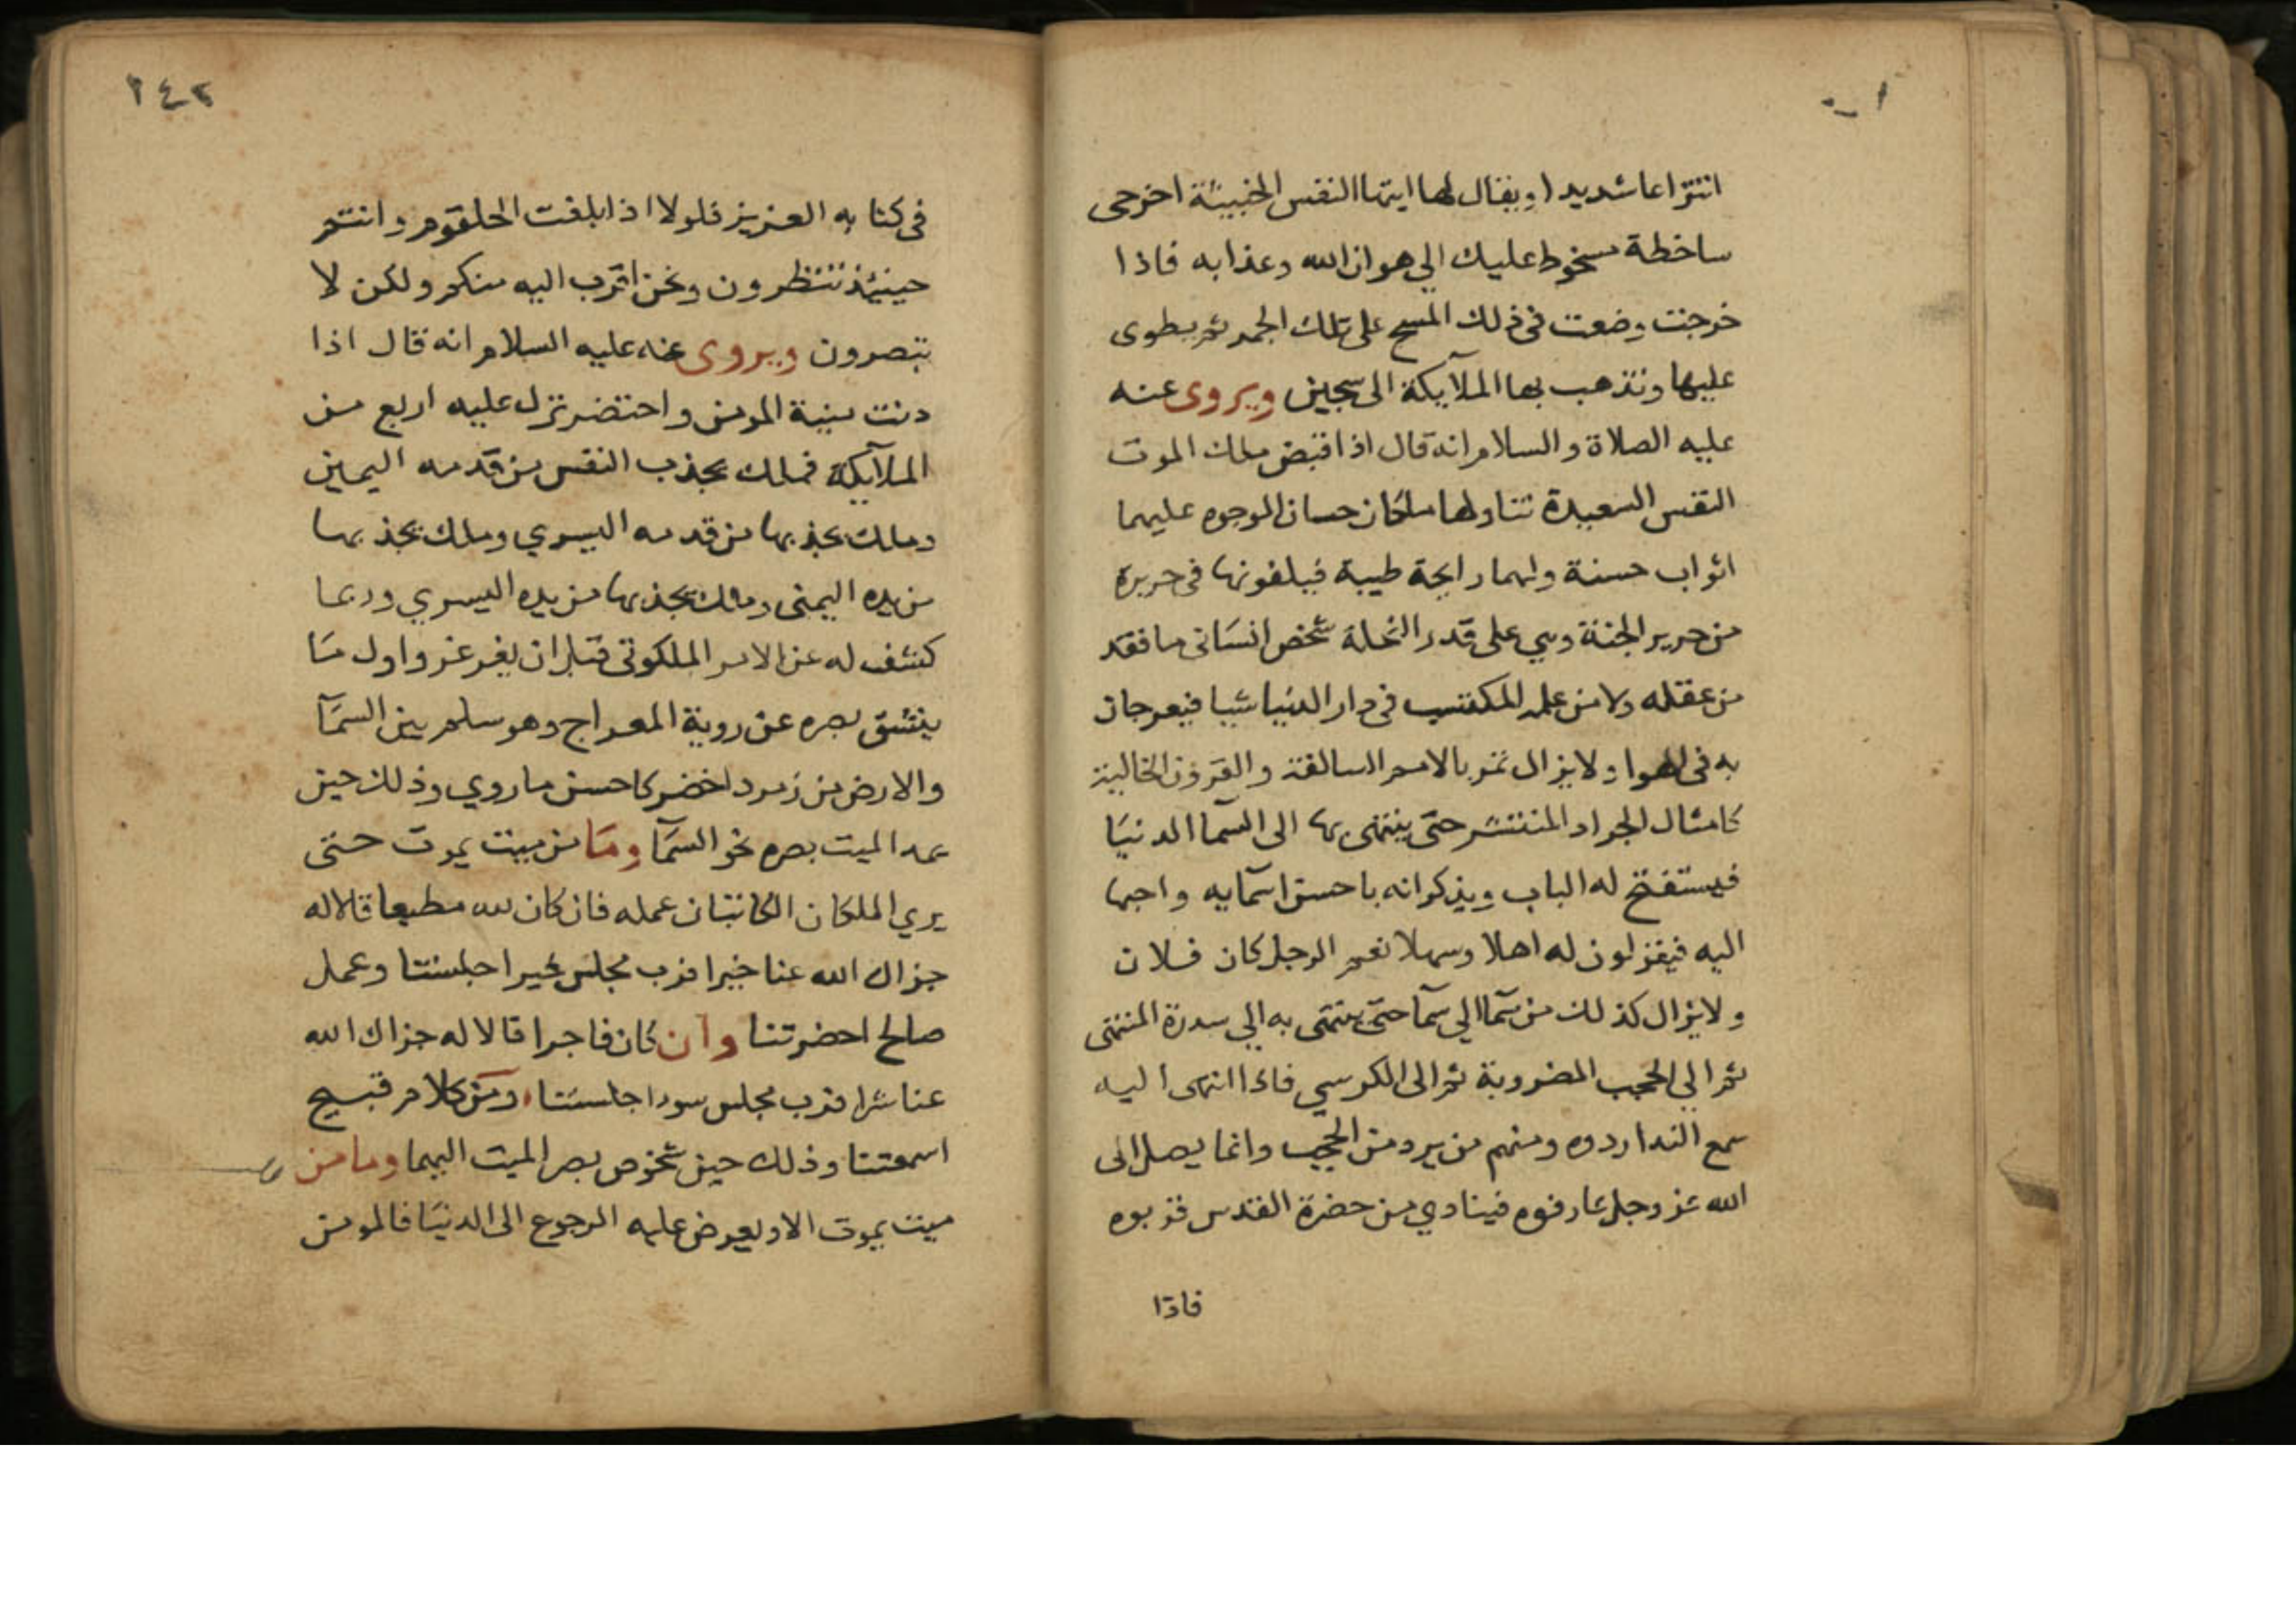 انتزاعا شديدا ويقال لها ايتها النفس الخبيثة اخرجى
ساخطة مسخوط عليك الي هوان الله وعذابه فاذا
خرجت وضعت في ذلك المسح على تلك الجمر ثم يطوى
عليها وتذهب بها الملآيكة الى سجين ويروى عنه
عليه الصلاة والسلام انه قال اذا قبض ملك الموت
النفس السعيدة تناولها ملكان حسان الوجوه عليهما
اثواب حسنة ولهما رايحة طيبة فيلفونها فى حريرة
من حرير الجنة وهي على قدر النحلة شخص انسانى ما فقد
من عقله ولا من علمه المكتسب فى دار الدنيا شيا فيعرجان
به فى الهوا ولا يزال تمر بالامم السالفة والقرون الخالية
كامثال الجراد المنتشر حتى ينتهى بها الى السما الدنيا
فيستفتح له الباب ويذكرانه باحسن اسمآيه واحبها
اليه فيقزلون له اهلا وسهلا نعم الرجل كان فلان
ولا يزال كذلك من سمآ الي سمآ حتى ينتهى به الي سدرة المنتهى
ثم الي الحجب المضروبة ثم الى الكرسي فاذا انتهى اليه
سمع الندا ردوه ومنهم من يرد من الحجب وانما يصل الى
الله عز وجل عارفوه فينادي من حضرة القدس قربوه
فاذا
٢٤٢
فى كتابه العزيز فلولا اذا بلغت الحلقوم وانتم
حينيئذ تنظرون ونحن اقرب اليه منكم ولكن لا
تبصرون ويروى عنه عليه السلام انه قال اذا
دنت منية المومن واحتضر نزل عليه اربع من
الملآيكة فملك يجذب النفس من قدمه اليمين
وملك يجذبها من قدمه اليسري وملك يجذبها
من يده اليمنى وملك يجذبها من يده اليسري وربما
كشف له عن الامر الملكوتى قبل ان يغرغر واول ما
ينشق بصره عن روية المعراج وهو سلم بين السمآ
والارض من زمرد اخضر كاحسن ما روي وذلك حين
يمد الميت بصره نحو السمآ وما من ميت يموت حتى
يري الملكان الكاتبان عمله فان كان لله مطيعا قالا له
جزاك الله عنا خيرا فرب مجلس خير اجلستنا وعمل
صالح احضرتنا وان كان فاجرا قالا له جزاك الله
عنا شرا فرب مجلس سوء اجلستنا ومن كلام قبيح
اسمعتنا وذلك حين شخوص بصر الميت اليهما وما من
ميت يموت الا ويعرض عليه الرجوع الى الدنيا فالمومن